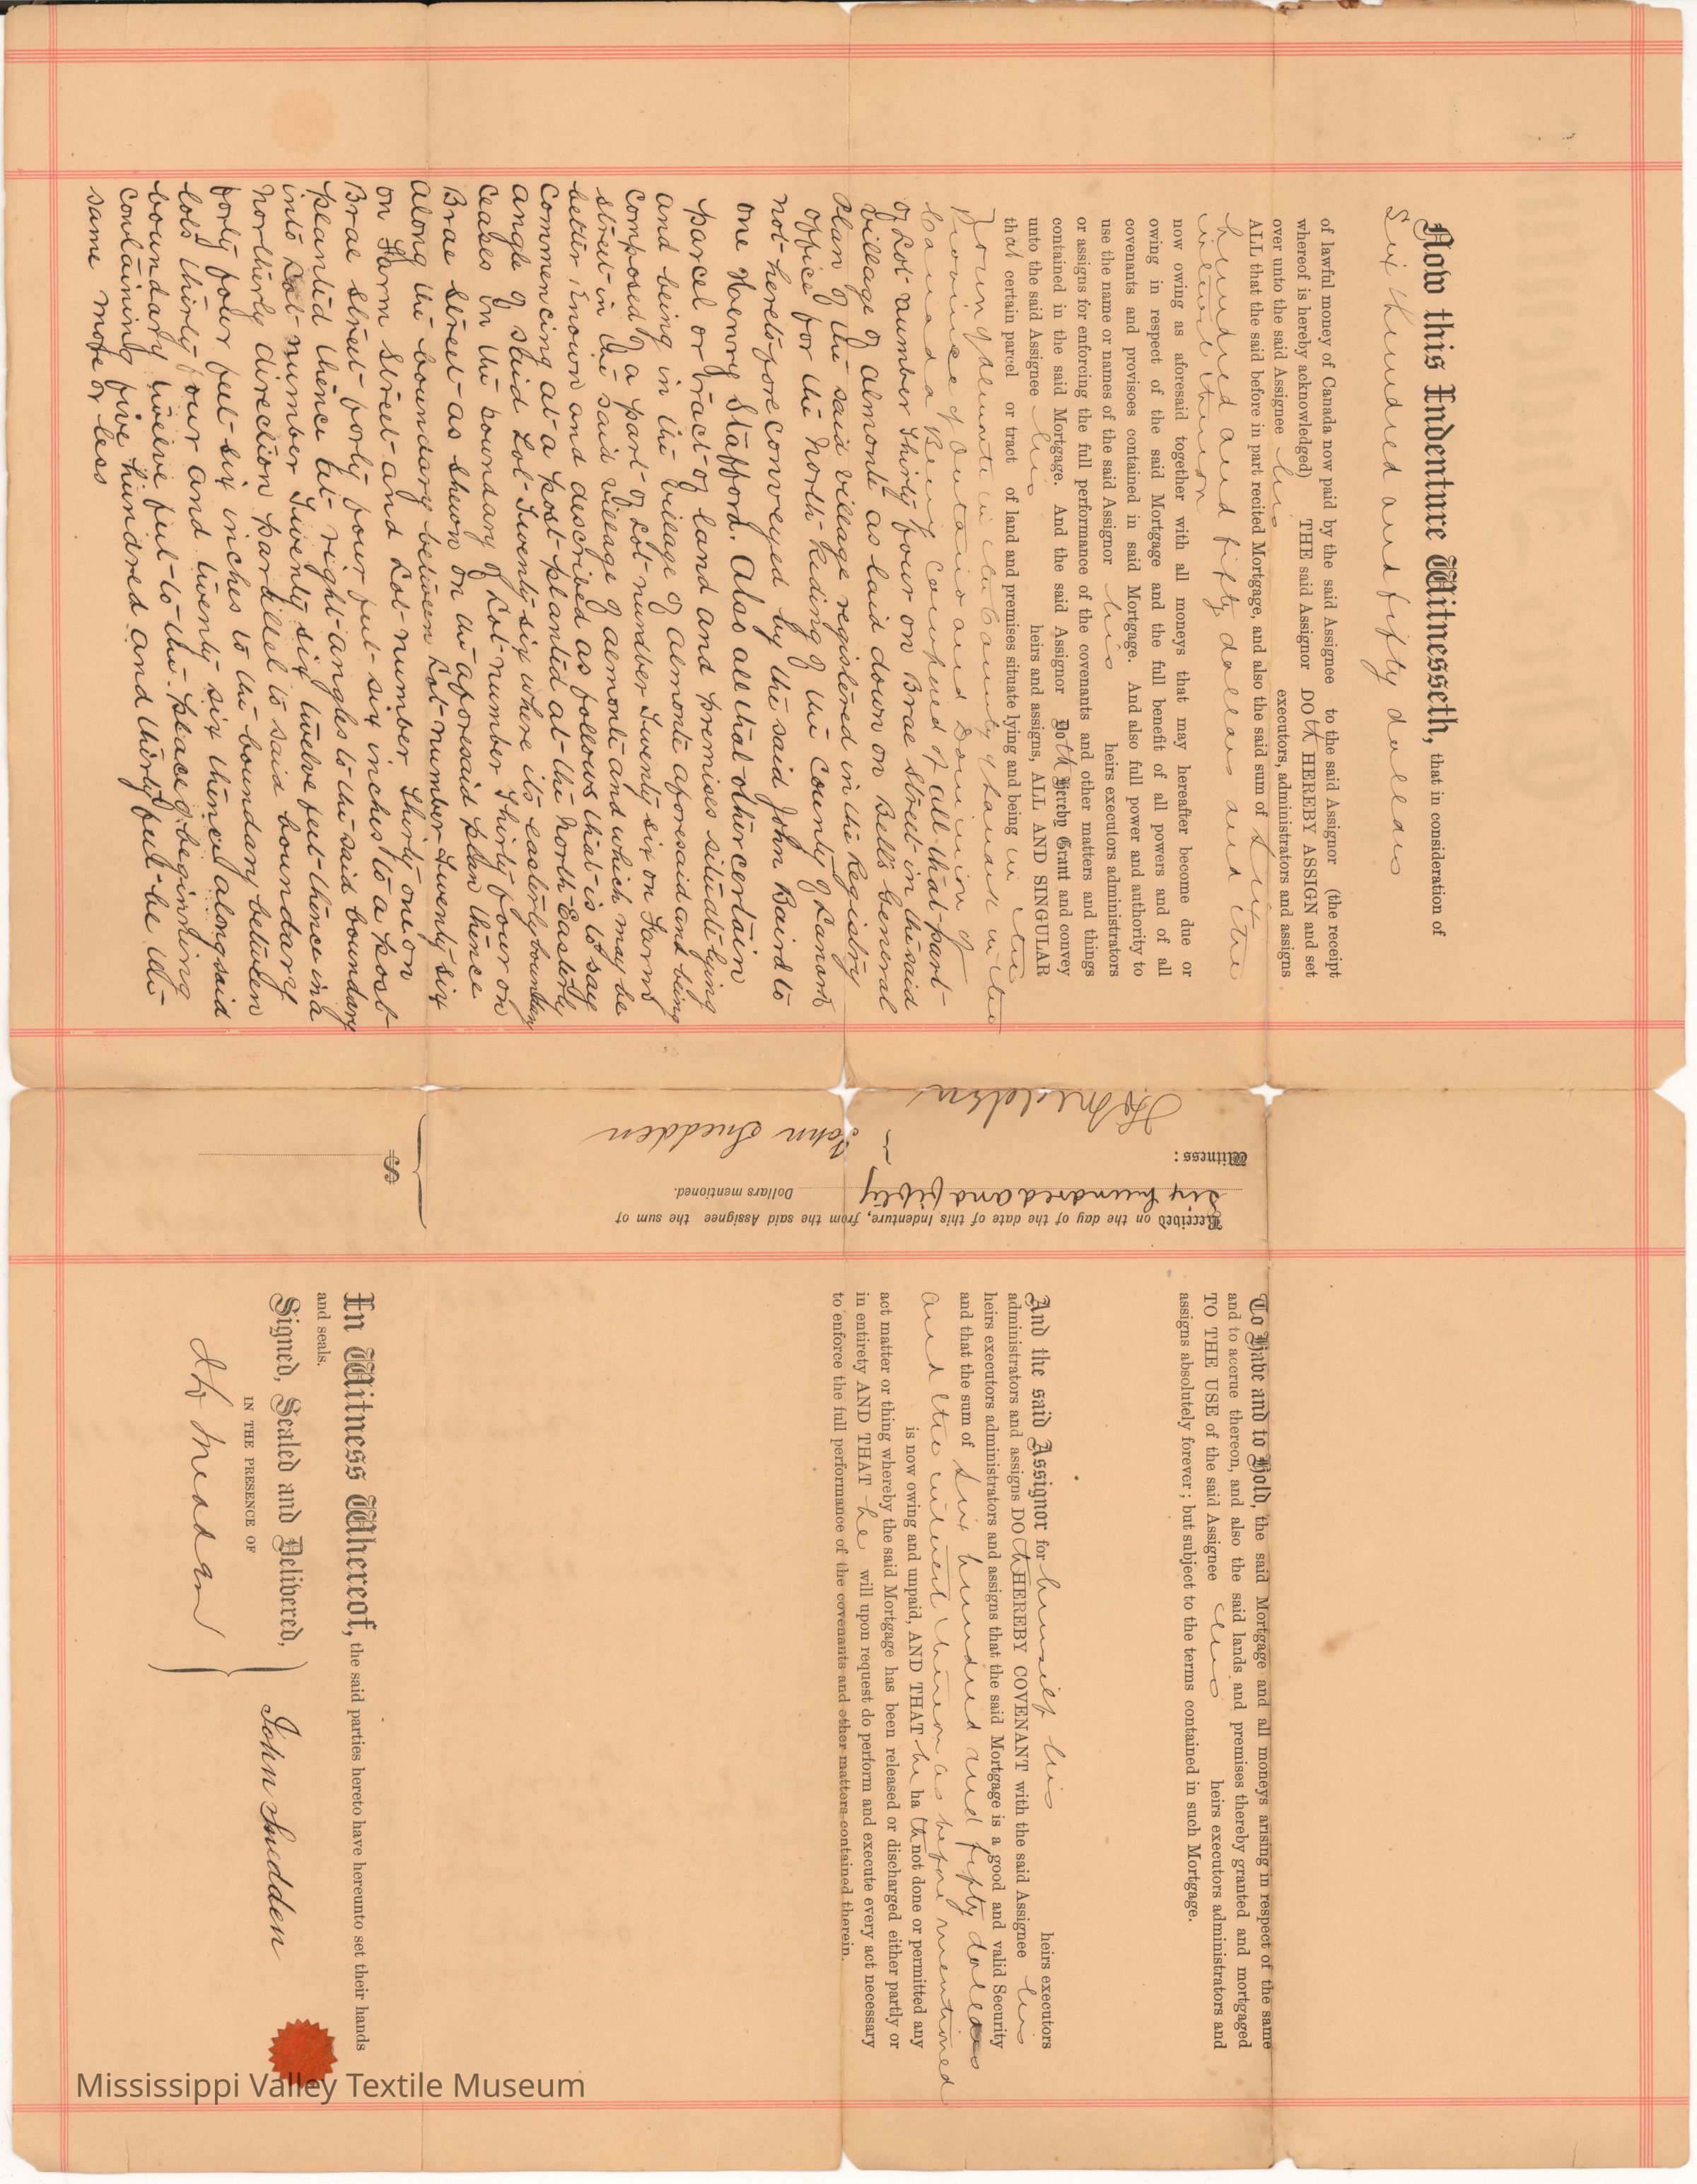 Now this Indenture Witnesseth, that in consideration of
Six hundred and fifty dollars
of lawful money of Canada now paid by the said Assignee to the said Assignor (the receipt
whereof is hereby acknowledged) THE said Assignor DOth HEREBY ASSIGN and set
over unto the said Assignee his executors, administrators and assigns
ALL that the said before in part recited Mortgage, and also the said sum of Six
hundred and fifty dollars and the
interest thereon
now owing as aforesaid together with all moneys that may hereafter become due or
owing in respect of the said Mortgage and the full benefit of all powers and of all
covenants and provisoes contained in said Mortgage. And also full power and authority to
use the name or names of the said Assignor his heirs executors administrators
or assigns for enforcing the full performance of the covenants and other matters and things
contained in the said Mortgage. And the said Assignor Doth Hereby Grant and convey
unto the said Assignee his heirs and assigns, ALL AND SINGULAR
that certain parcel or tract of land and premises situate lying and being in the
Town of Almonte in the County of Lanark in the
Province of Ontario and Dominion of
Canada Being composed of all that part
of Lot number Thirty four on Brae Street in the said
Village of Almonte as laid down on Bells General
Plan of the said Village registered in the Registry
office for the North Riding of the County of Lanark
not heretofore conveyed by the said John Baird to
one Henry Stafford. Also all that other certain
parcel or tract of land and premises situate lying
and being in the Village of Almonte aforesaid and being
composed of a part of Lot number Twenty six on Farm
street in the said Village of Almonte and which may be
better known and described as follows that is to say
Commencing at a post planted at the North Easterly
angle of said Lot Twenty six where its easterly boundary
ceases on the boundary of Lot number Thirty four on
Brae street as shewn on the aforesaid plan thence
along the boundary between Lot number Twenty six
on Farm Street and Lot number Thirty one on
Brae street forty four feet six inches to a post
planted thence at right angles to the said boundary
into Lot number Twenty six twelve feet thence in a
northerly direction parallel to said boundary
forty four feet six inches to the boundary between
lots thirty four and twenty six thence along said
boundary twelve feet to the place of beginning
containing five hundred and thirty feet be the
same more or less
Received on the day of the date of this Indenture, from the said Assignee the sum of
six hundred and fifty Dollars mentioned.
Witness:
John Snedden
$
To Have and to Hold, the said Mortgage and all moneys arising in respect of the same
and to accrue thereon, and also the said lands and premises thereby granted and mortgaged
TO THE USE of the said Assignee his heirs executors administrators and
assigns absolutely forever; but subject to the terms contained in such Mortgage.
And the said Assignor for himself his heirs executors
administrators and assigns DOth HEREBY COVENANT with the said Assignee his
heirs executors administrators and assigns that the said Mortgage is a good and valid Security
and that the sum of Six hundred and fifty dollars
and the interest thereon as before mentioned
is now owing and unpaid, AND THAT he hath not done or permitted any
act matter or thing whereby the said Mortgage has been released or discharged either partly or
in entirety AND THAT he will upon request do perform and execute every act necessary
to enforce the full performance of the covenants and other matters contained therein.
In Witness Whereof, the said parties hereto have hereunto set their hands
and seals.
Signed, Sealed and Delivered,
IN THE PRESENCE OF
John Snedden
Mississippi Valley Textile Museum